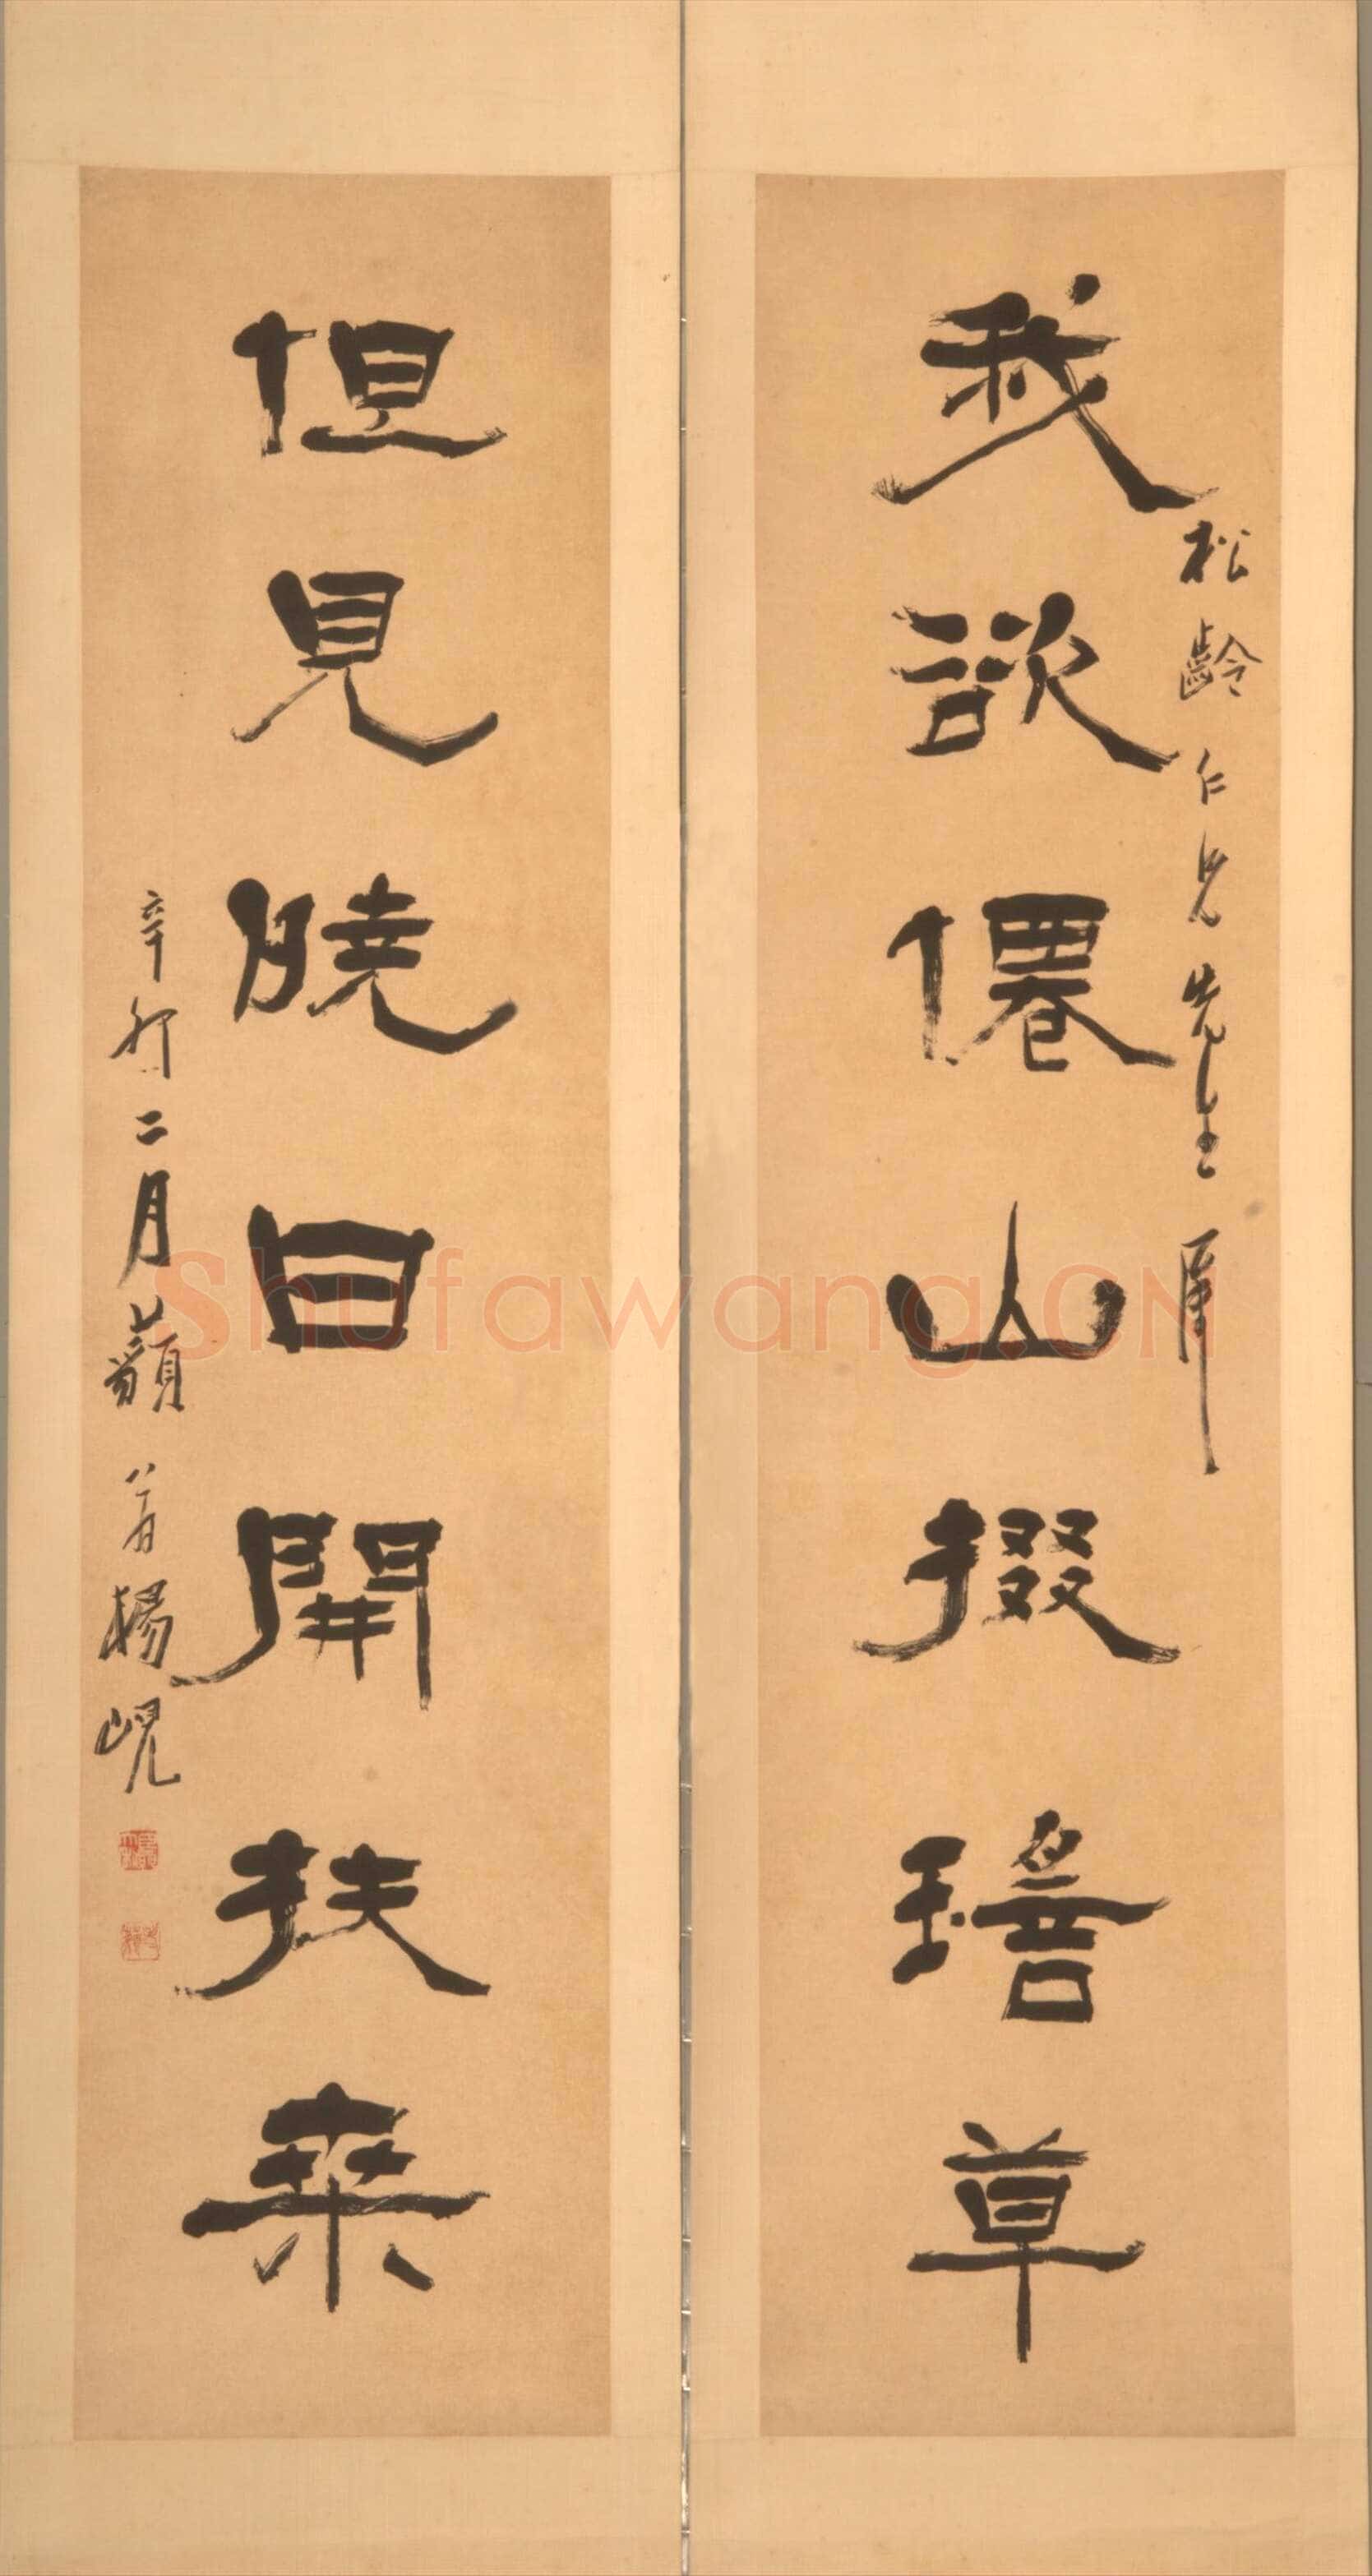 我欲僊山掇瑤草
松齡仁兄先生屬
但見曉日開扶桒
辛卯二月藐翁楊峴
Shufawang.CN